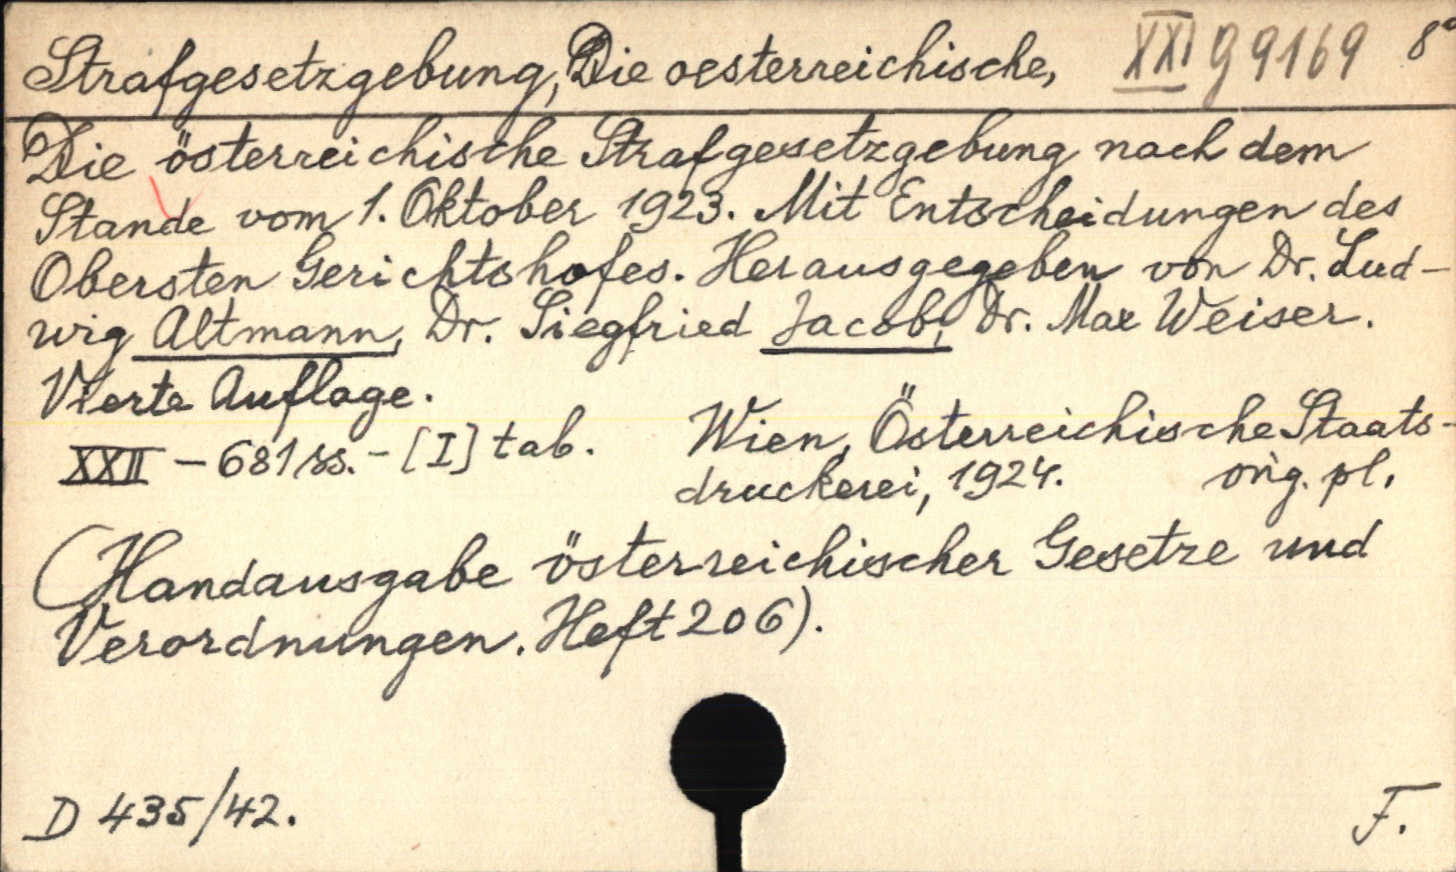 Strafgesetzgebung, Die oesterreichische, XXI g 9169 8°
Die österreichische Strafgesetzgebung nach dem
Stande vom 1. Oktober 1923. Mit Entscheidungen des
Obersten Gerichtshofes. Herausgegeben von Dr. Lud-
wig Altmann, Dr. Siegfried Jacob, Dr. Max Weiser.
Vierte Auflage.
XXII - 681 ss. - [I] tab. Wien, Österreichische Staats-
druckerei, 1924. orig. pl.
(Handausgabe österreichischer Gesetze und
Verordnungen. Heft 206).
D 435/42. F.